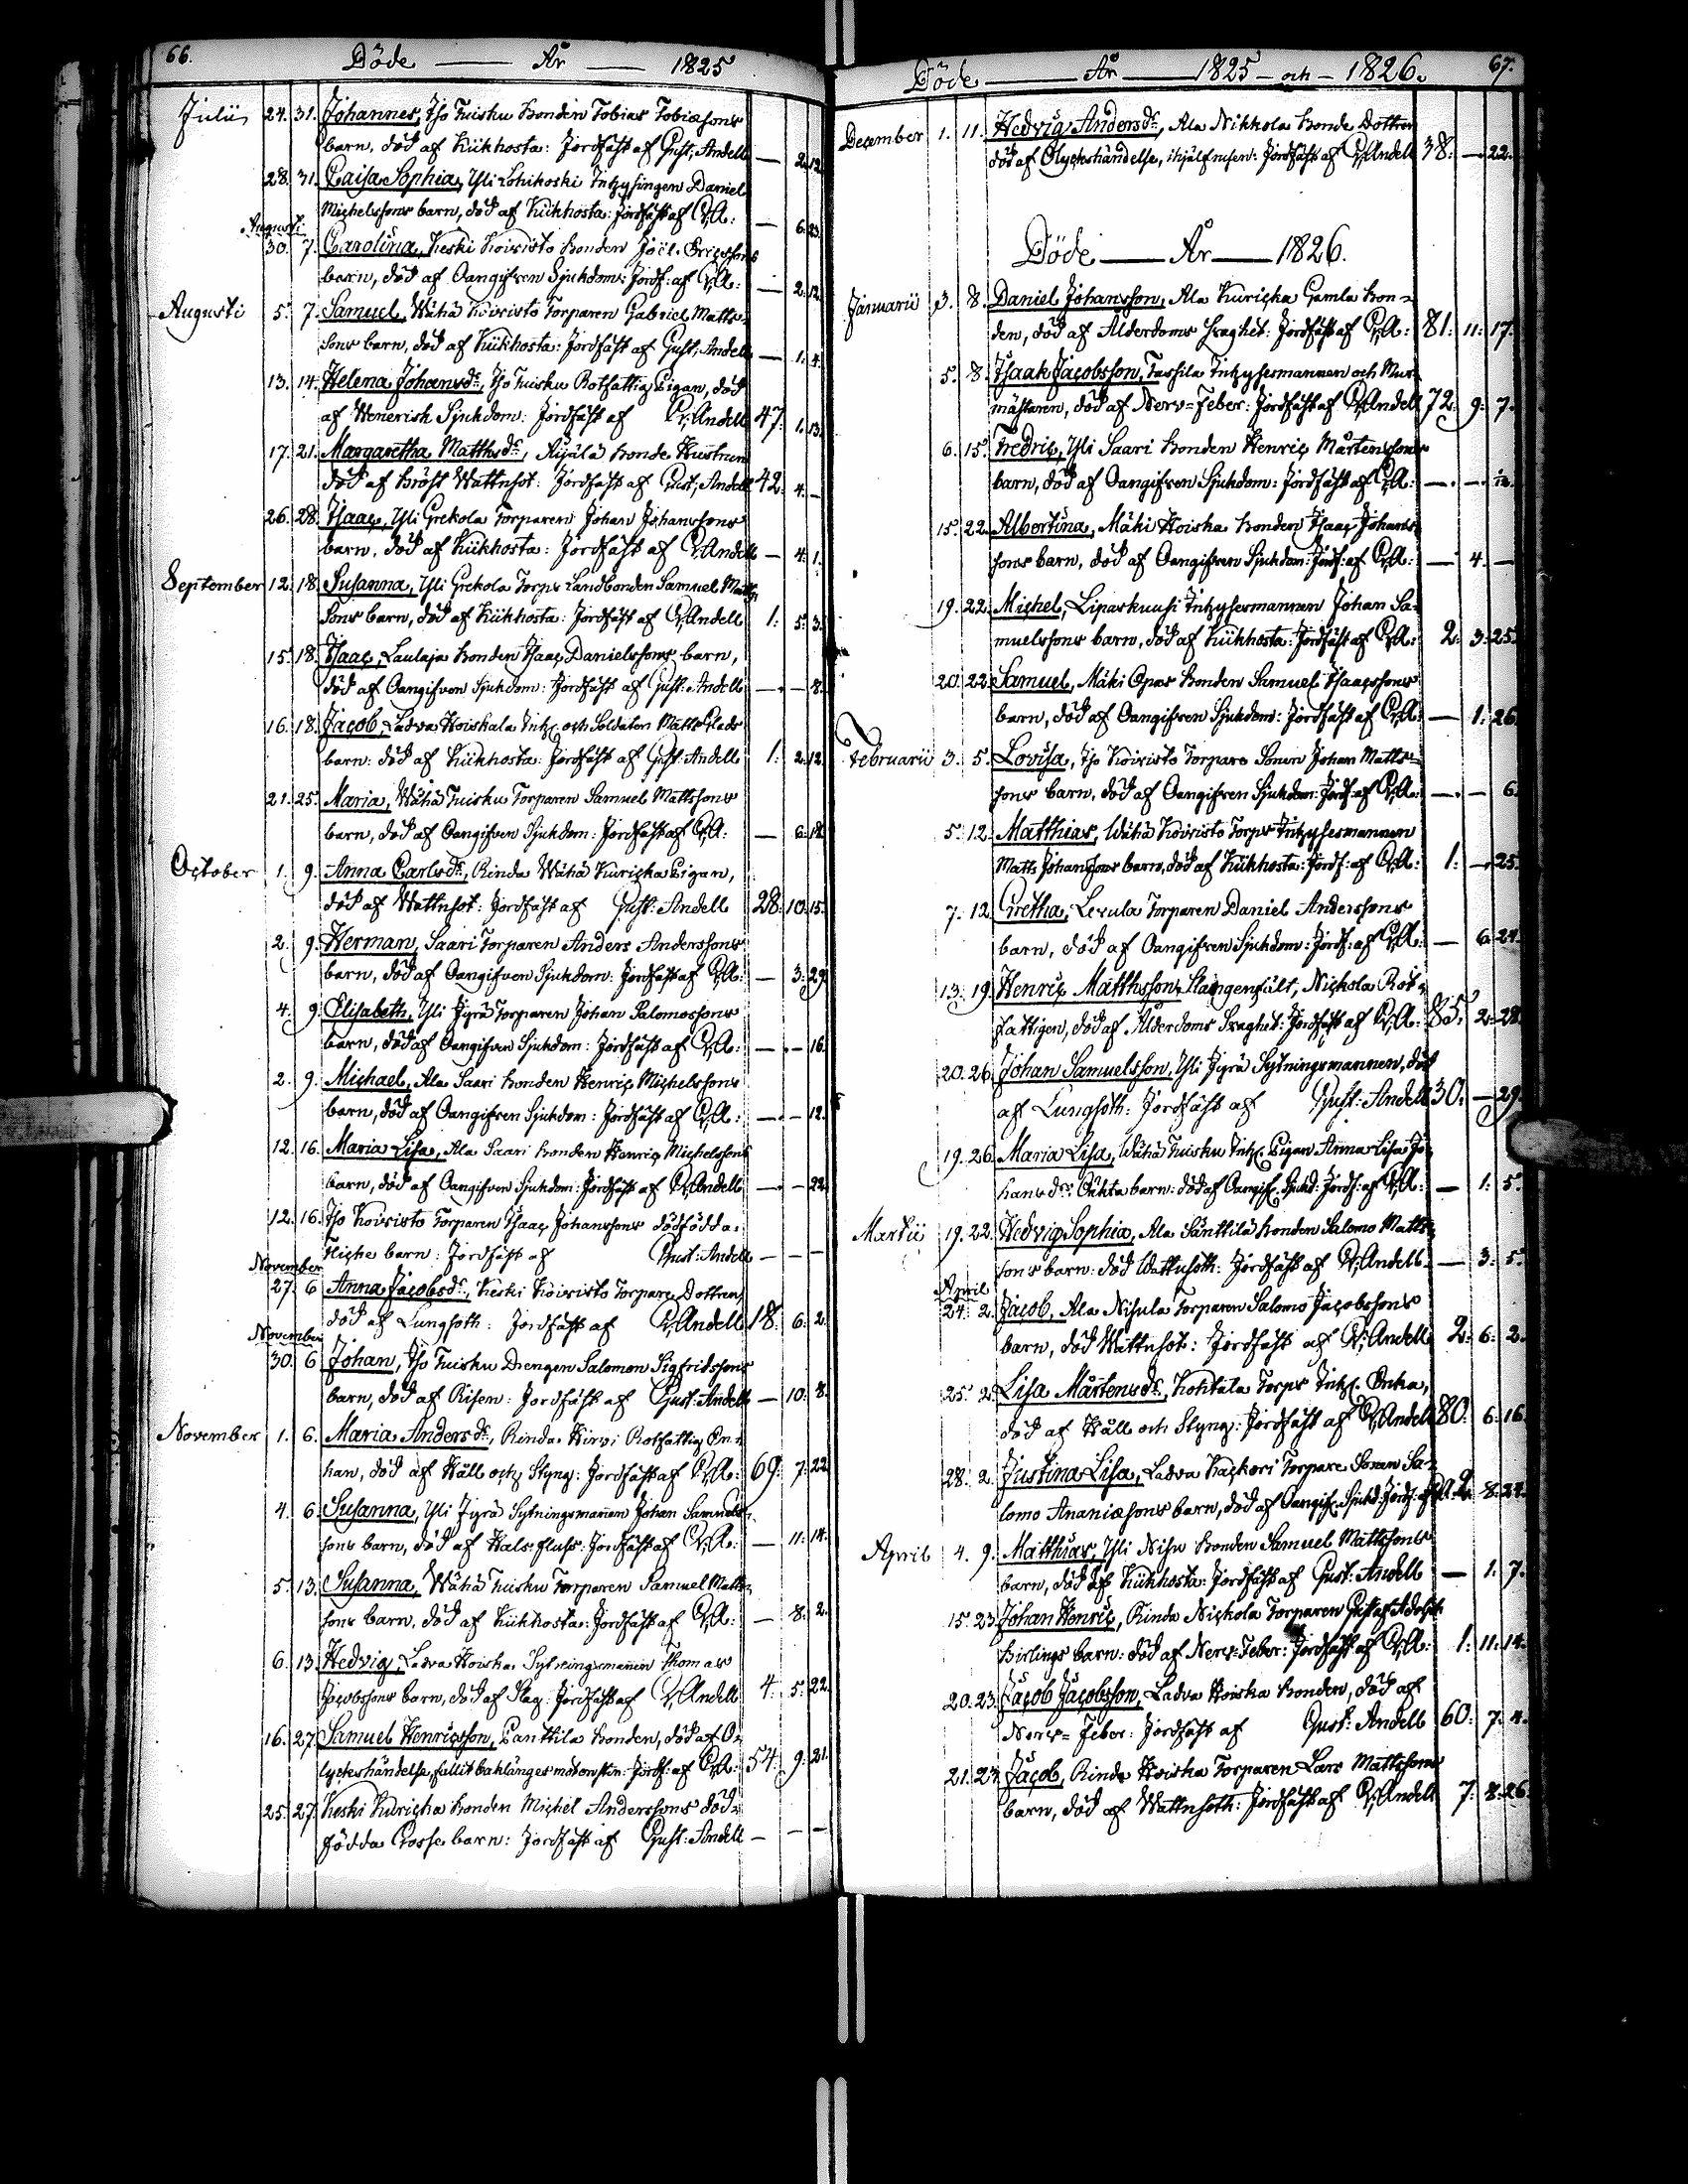 66.
Döde — År — 1825
Julii 24. 31. Johannes, Iso Tuisku Bonden Tobias Tobiæsons
barn, död af Kikhosta: Jordfäst af Gust: Andell — 2. 12.
28. 31. Caisa Sophia, Yli Lohikoski Inhysingen Daniel
Michelssons barn, död af Kikhosta: Jordfäst af G:A: — 6. 23.
Augusti
30. 7. Carolina, Keski Koivisto Bonden Joël Ericssons
barn, död af Oangifven Sjukdom: Jordf: af G:A: — 2. 12.
Augusti 5. 7. Samuel, Wähä Koivisto Torparen Gabriel Matts-
sons barn, död af Kikhosta: Jordfäst af Gust: Andell — 1. 4.
13. 14. Helena Johansdr, Iso Tuisku Rotfattig Pigan, död
af Wenerisk Sjukdom: Jordfäst af G: Andell 47. 1. 13.
17. 21. Margaretha Matthsdr, Äijälä Bonde Hustrun
död af Bröst Wattusot: Jordfäst af Gust: Andell 42. 4. —
26. 28. Isaac, Yli Grekola Torparen Johan Johanssons
barn, död af Kikhosta: Jordfäst af G: Andell — 4. 1.
September 12. 18. Susanna, Yli Grekola Torps Landbonden Samuel Matts-
sons barn, död af Kikhosta: Jordfäst af G: Andell 1. 5. 3.
15. 18. Isaac, Laulaja Bonden Isaac Danielssons barn,
död af Oangifven Sjukdom: Jordfäst af Gust: Andell — — 8.
16. 18. Jacob, Ladva Hoiskala Inh: och Soldaten Matts Glads
barn: död af Kikhosta: Jordfäst af Gust: Andell 1. 2. 12.
21. 25. Maria, Wähä Tuisku Torparen Samuel Mattssons
barn, död af Oangifven Sjukdom: Jordfäst af G:A: — 6. 18.
October 1. 9. Anna Carlsdr, Rinda Wähä Kuricka Pigan,
död af Wattusot: Jordfäst af Gust: Andell 28. 10. 15.
2. 9. Herman, Saari Torparen Anders Anderssons
barn, död af Oangifven Sjukdom: Jordfäst af G:A: — 3. 29.
4. 9. Elisabeth, Yli Jyrä Torparen Johan Salomossons
barn, död af Oangifven Sjukdom: Jordfäst af G:A: — — 16.
2. 9. Michael, Ala Saari Bonden Henric Michelssons
barn, död af Oangifven Sjukdom: Jordfäst af G:A: — — 12.
12. 16. Maria Lisa, Ala Saari Bonden Henric Michelssons
barn, död af Oangifven Sjukdom: Jordfäst af G: Andell — — 22.
12. 16. Iso Koivisto Torparen Isaac Johanssons dödfödda
Flicke barn: Jordfäst af Gust: Andell — — —
November
27. 6. Anna Jacobsdr, Keski Koivisto Torpare Dottren
död af Lungsoth: Jordfäst af G: Andell 18. 6. 2.
November
30. 6. Johan, Iso Tuisku Drengen Salomon Sigfridssons
barn, död af Risen: Jordfäst af Gust: Andell — 10. 8.
November 1. 6. Maria Andersdr, Rinda Hirvi Rotfattig En-
kan, död af Håll och Styng: Jordfäst af G:A: 69. 7. 22.
4. 6. Susanna, Yli Jyrä Sytningsmannen Johan Samuels-
sons barn, död af Hals fluss: Jordfäst af G:A: — 11. 14.
5. 13. Susanna, Wähä Tuisku Torparen Samuel Matts-
sons barn, död af Kikhosta: Jordfäst af G:A: — 8. 2.
6. 13. Hedvig, Ladva Hoiska Sytningsmannen Thomas
Jacobssons barn, död af Slag: Jordfäst af G: Andell 4. 5. 22.
16. 27. Samuel Henricsson, Panttila Bonden, död af O-
lyckshändelse, fallit baklänges mot en sten: Jordf: af G:A: 54. 9. 21.
25. 27. Keski Kuricka Bonden Michel Anderssons död-
födda Gosse barn: Jordfäst af Gust: Andell — — —
67.
Döde — År — 1825 — och — 1826.
December 1. 11. Hedvig Andersdr, Ala Nikkola Bonde Dottren
död af Olyckshändelse, ihjälfrusen: Jordfäst af G: Andell 38. — 22.
Döde — År — 1826.
Januarii 3. 8. Daniel Johansson, Ala Kuricka Gamla Bon-
den, död af Ålderdoms Svaghet: Jordfäst af G:A: 81. 11. 17.
5. 8. Isaak Jacobsson, Tassila Inhysesmannen och Mur-
mästaren, död af Nerv-Feber: Jordfäst af G: Andell 72. 9. 7.
6. 15. Fredric, Yli Saari Bonden Henric Mårtenssons
barn, död af Oangifven Sjukdom: Jordfäst af G:A: — —
15. 22. Albertina, Mäki Hoiska Bonden Isaac Johans-
sons barn, död af Oangifven Sjukdom: Jordf: af G:A: — 4. —
19. 22. Michel, Liparkuusi Inhysesmannen Johan Sa-
muelssons barn, död af Kikhosta: Jordfäst af G:A: 2. 3. 25.
20. 22. Samuel, Mäki Opas Bonden Samuel Isaacssons
barn, död af Oangifven Sjukdom: Jordfäst af G:A: — 1. 26.
Februarii 3. 5. Lovisa, Iso Koivisto Torpare Sonen Johan Matts-
sons barn, död af Oangifven Sjukdom: Jordf: af G:A: — — 6.
5. 12. Matthias, Wähä Koivisto Torps Inhysesmannen
Matts Johanssons barn, död af Kikhosta: Jordf: af G:A: 1. — 25.
7. 12. Gretha, Lerula Torparen Daniel Anderssons
barn, död af Oangifven Sjukdom: Jordf: af G:A: — 6. 24.
13. 19. Henric Matthsson Slangenfält, Nickola Rot-
fattigen, död af Ålderdoms Svaghet: Jordfäst af G:A: 85. 2. 28.
20. 26. Johan Samuelsson, Yli Jyrä Sytningsmannen, död
af Lungsoth: Jordfäst af Gust: Andell 30. — 29.
19. 26. Maria Lisa, Wähä Tuisku Inh: Pigan Anna Lisa Jo-
hansdrs Oäkta barn: död af Oangif: Sjukd: Jordf: af G:A: — 1. 5.
Martii 19. 22. Hedvig Sophia, Ala Säntilä Bonden Salomo Matts-
sons barn: död Wattusoth: Jordfäst af G: Andell — 3. 5.
April
24. 2. Jacob, Ala Nisula Torparen Salomo Jacobssons
barn, död Wattusot: Jordfäst af G: Andell 2. 6. 2.
25. 2. Lisa Mårtensdr, Kohtala Torps Inh: Enka,
död af Håll och Styng: Jordfäst af G: Andell 80. 6. 16.
28. 2. Justina Lisa, Ladva Hackori Torpare Sonen Sa-
lomo Ananiæsons barn, död af Oangif: Sjukd: Jordf: af G:A: 2. 8. 24.
April 4. 9. Matthias, Yli Nisu Bonden Samuel Mattssons
barn, död af Kikhosta: Jordfäst af Gust: Andell — 1. 7.
15. 23. Johan Henric, Rinda Nickola Torparen Gustaf Adolph
Birlings barn: död af Nerv-Feber: Jordfäst af G:A: 1. 11. 14.
20. 23. Jacob Jacobsson, Ladva Hoiska Bonden, död af
Nerv-Feber: Jordfäst af Gust: Andell 60. 7. 4.
21. 23. Jacob, Rinda Hoiska Torparen Lars Mattssons
barn, död af Wattusoth: Jordfäst af G: Andell 7. 8. 26.